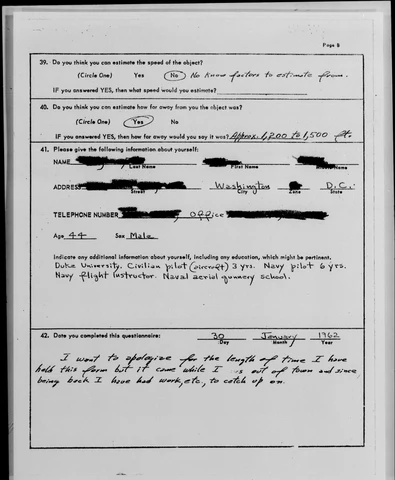 Page 8
39. Do you think you can estimate the speed of the object?
(Circle One) Yes No No know factors to estimate from.
IF you answered YES, then what speed would you estimate?
40. Do you think you can estimate how far away from you the object was?
(Circle One) Yes No
IF you answered YES, then how far away would you say it was? Approx. 1,200 to 1,500 fts
41. Please give the following information about yourself:
NAME
Last Name First Name Middle Name
ADDRESS Washington D.C.
Street City Zone State
TELEPHONE NUMBER office
Age 44 Sex Male
Indicate any additional information about yourself, including any education, which might be pertinent.
Duke University. Civilian pilot (aircraft) 3 yrs. Navy pilot 6 yrs.
Navy flight instructor. Naval aerial gunnery school.
42. Date you completed this questionnaire: 30 January 1962
Day Month Year
I want to apologize for the length of time I have
held this form but it came while I was out of town and since
being back I have had work, etc., to catch up on.